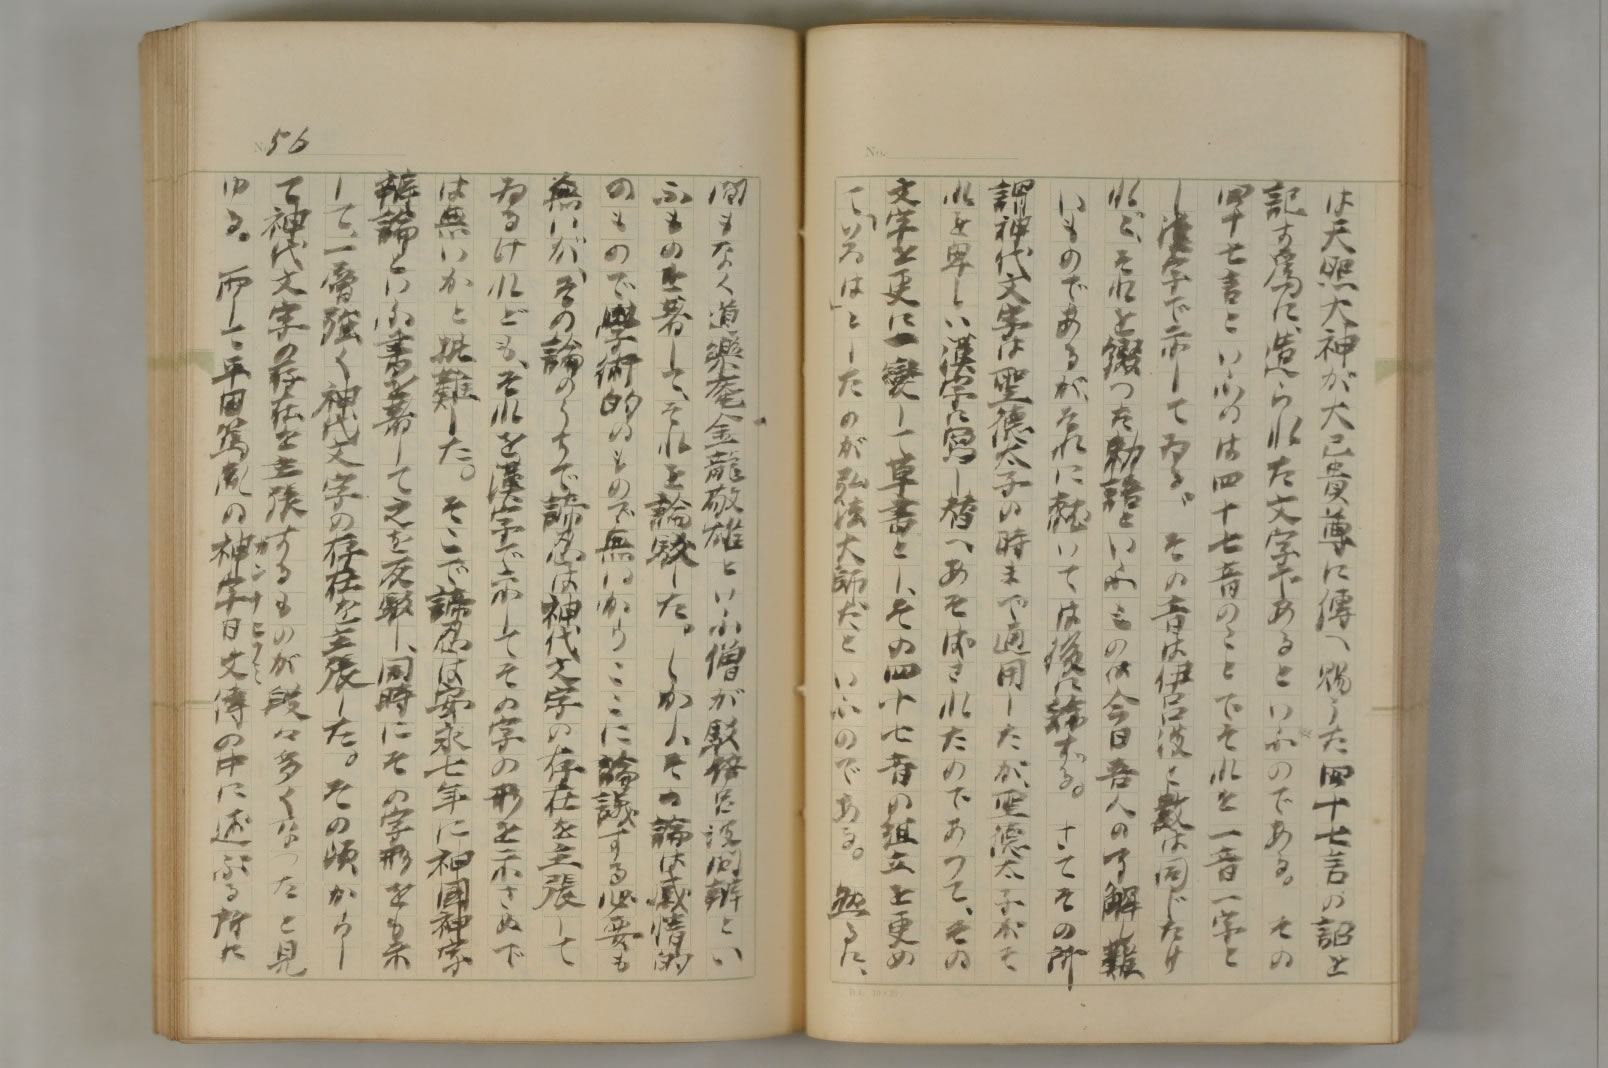 は天照大神が大己貴尊に傳へ賜うた四十七言の詔を
記す爲に、造られた文字であるといふのである。その
四十七言といふのは四十七音のことでそれを一音一字と
し漢字で示してゐる。その音は伊呂波と數は同じだけ
れど、それを綴つた勅語といふものは今日吾人の了解し難
いものであるが、それに就いては後に論ずる。さてその所
謂神代文字は聖德太子の時まで通用したが、聖德太子がそ
れを卑しい漢字に寫し替へあそばされたのであつて、その
文字を更に一變して草書とし、その四十七音の組立を更め
て「いろは」としたのが弘法大師だといふのである。然るに、
No.
No. 56
間もなく道樂菴金龍敬雄といふ僧が駁 辨とい
ふものを著して、それを論駁した。しかしその論は感情的
のもので學術的のもので無いからここに論議する必要も
無いが、その論のうちで諦忍は神代文字の存在を主張して
ゐるけれども、それを漢字で示してその字の形を示さぬで
は無いかと批難した。そこで諦忍は安永七年に神國神字
辨論といふ書を著して之を反駁し、同時にその字形をも示
して、一層強く神代文字の存在を主張した。その頃からし
て神代文字の存在を主張するものが段々多くなつたと見
ゆる。而して平田篤胤の神字日文傳の中に述ぶる所に
カンナヒフミ